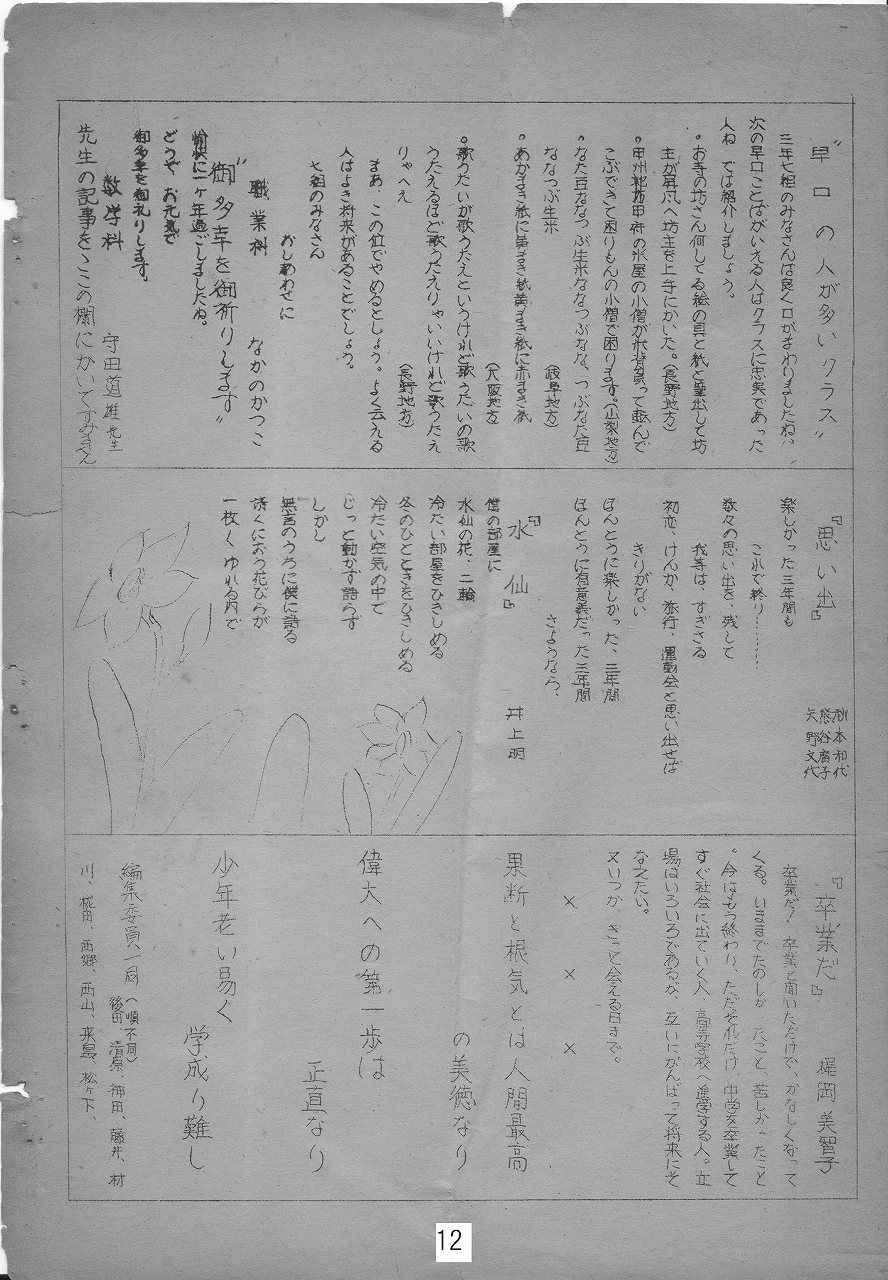 “早口の人が多いクラス”
三年七組のみなさんは良く口がまわりましたね。
次の早口ことばがいえる人はクラスに忠実であった
人ね では紹介しましょう。
。お寺の坊さん何してる絵の具と紙と筆出して坊
主が屏風へ坊主を上手にかいた。(長野地方)
。甲州地方甲府の米屋の小僧が米背負って転んで
こぶできて困りもんの小僧で困ります。(山梨地方)
。なた豆ななつぶ生米ななつぶなな、つぶなた豆
ななつぶ生米 (岐阜地方)
。あかまき紙に黄まき紙黄まき紙に赤まき紙
(大阪地方)
。歌うたいが歌うたえというけれど歌うたいの歌
うたえるほど歌うたえりゃいいけれど歌うたえ
りゃへえ (長野地方)
まあ、この位でやめるとしょう。よく云える
人はよき将来があることでしょう。
七組のみなさん
おしあわせに
職業科 なかのかつこ
“御多幸を御祈りします”
愉快に一ヶ年過ごしましたね。
どうぞ お元気で
御多幸を御礼りします。
数学科 守田道雄先生
先生の記事をここの欄にかいてすみません
『思い出』
秋本和代
熊谷富子
矢野文代
楽しかった三年間も
これで終り………
数々の思い出を、残して
我等は、すぎさる
初恋、けんか、旅行、運動会と思い出せば
きりがない
ほんとうに楽しかった、三年間
ほんとうに有意義だった三年間
さようなら、
『水仙』 井上明
僕の部屋に
水仙の花、二輪
冷たい部屋をひきしめる
冬のひとときをひきしめる
冷たい空気の中で
じっと動かず語らず
しかし
無言のうちに僕に語る
清くにおう花びらが
一枚くゆれる内で
『卒業だ』 梶岡美智子
卒業だ！卒業と聞いただけで、かなしくなって
くる。いままでたのしかったこと、苦しかったこと
。今はもう終わり、ただそれだけ、中学を卒業して
すぐ社会に出ていく人、高等学校へ進学する人。立
場はいろいろであるが、互いにがんばって将来にそ
なえたい。
又いつか、きっと会える日まで。
× × ×
果断と根気とは人間最高
の美徳なり
偉大への第一歩は
正直なり
少年老い易く
学成り難し
編集委員一同(順不同)
後田、清原、神田、藤井、材
川、梶田、西郷、西山、来島、松ヶ下、
12